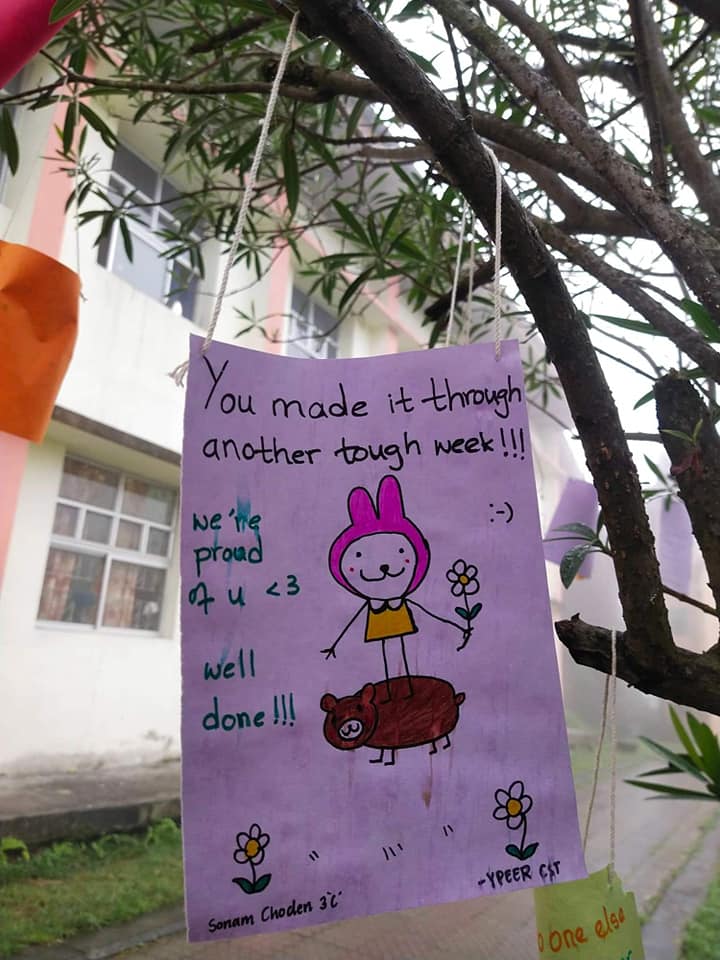 You made it through
another tough week!!!
we're
proud
of u <3
:-)
well
done!!!
-YPEER CST
Sonam Choden 3'C'
one else